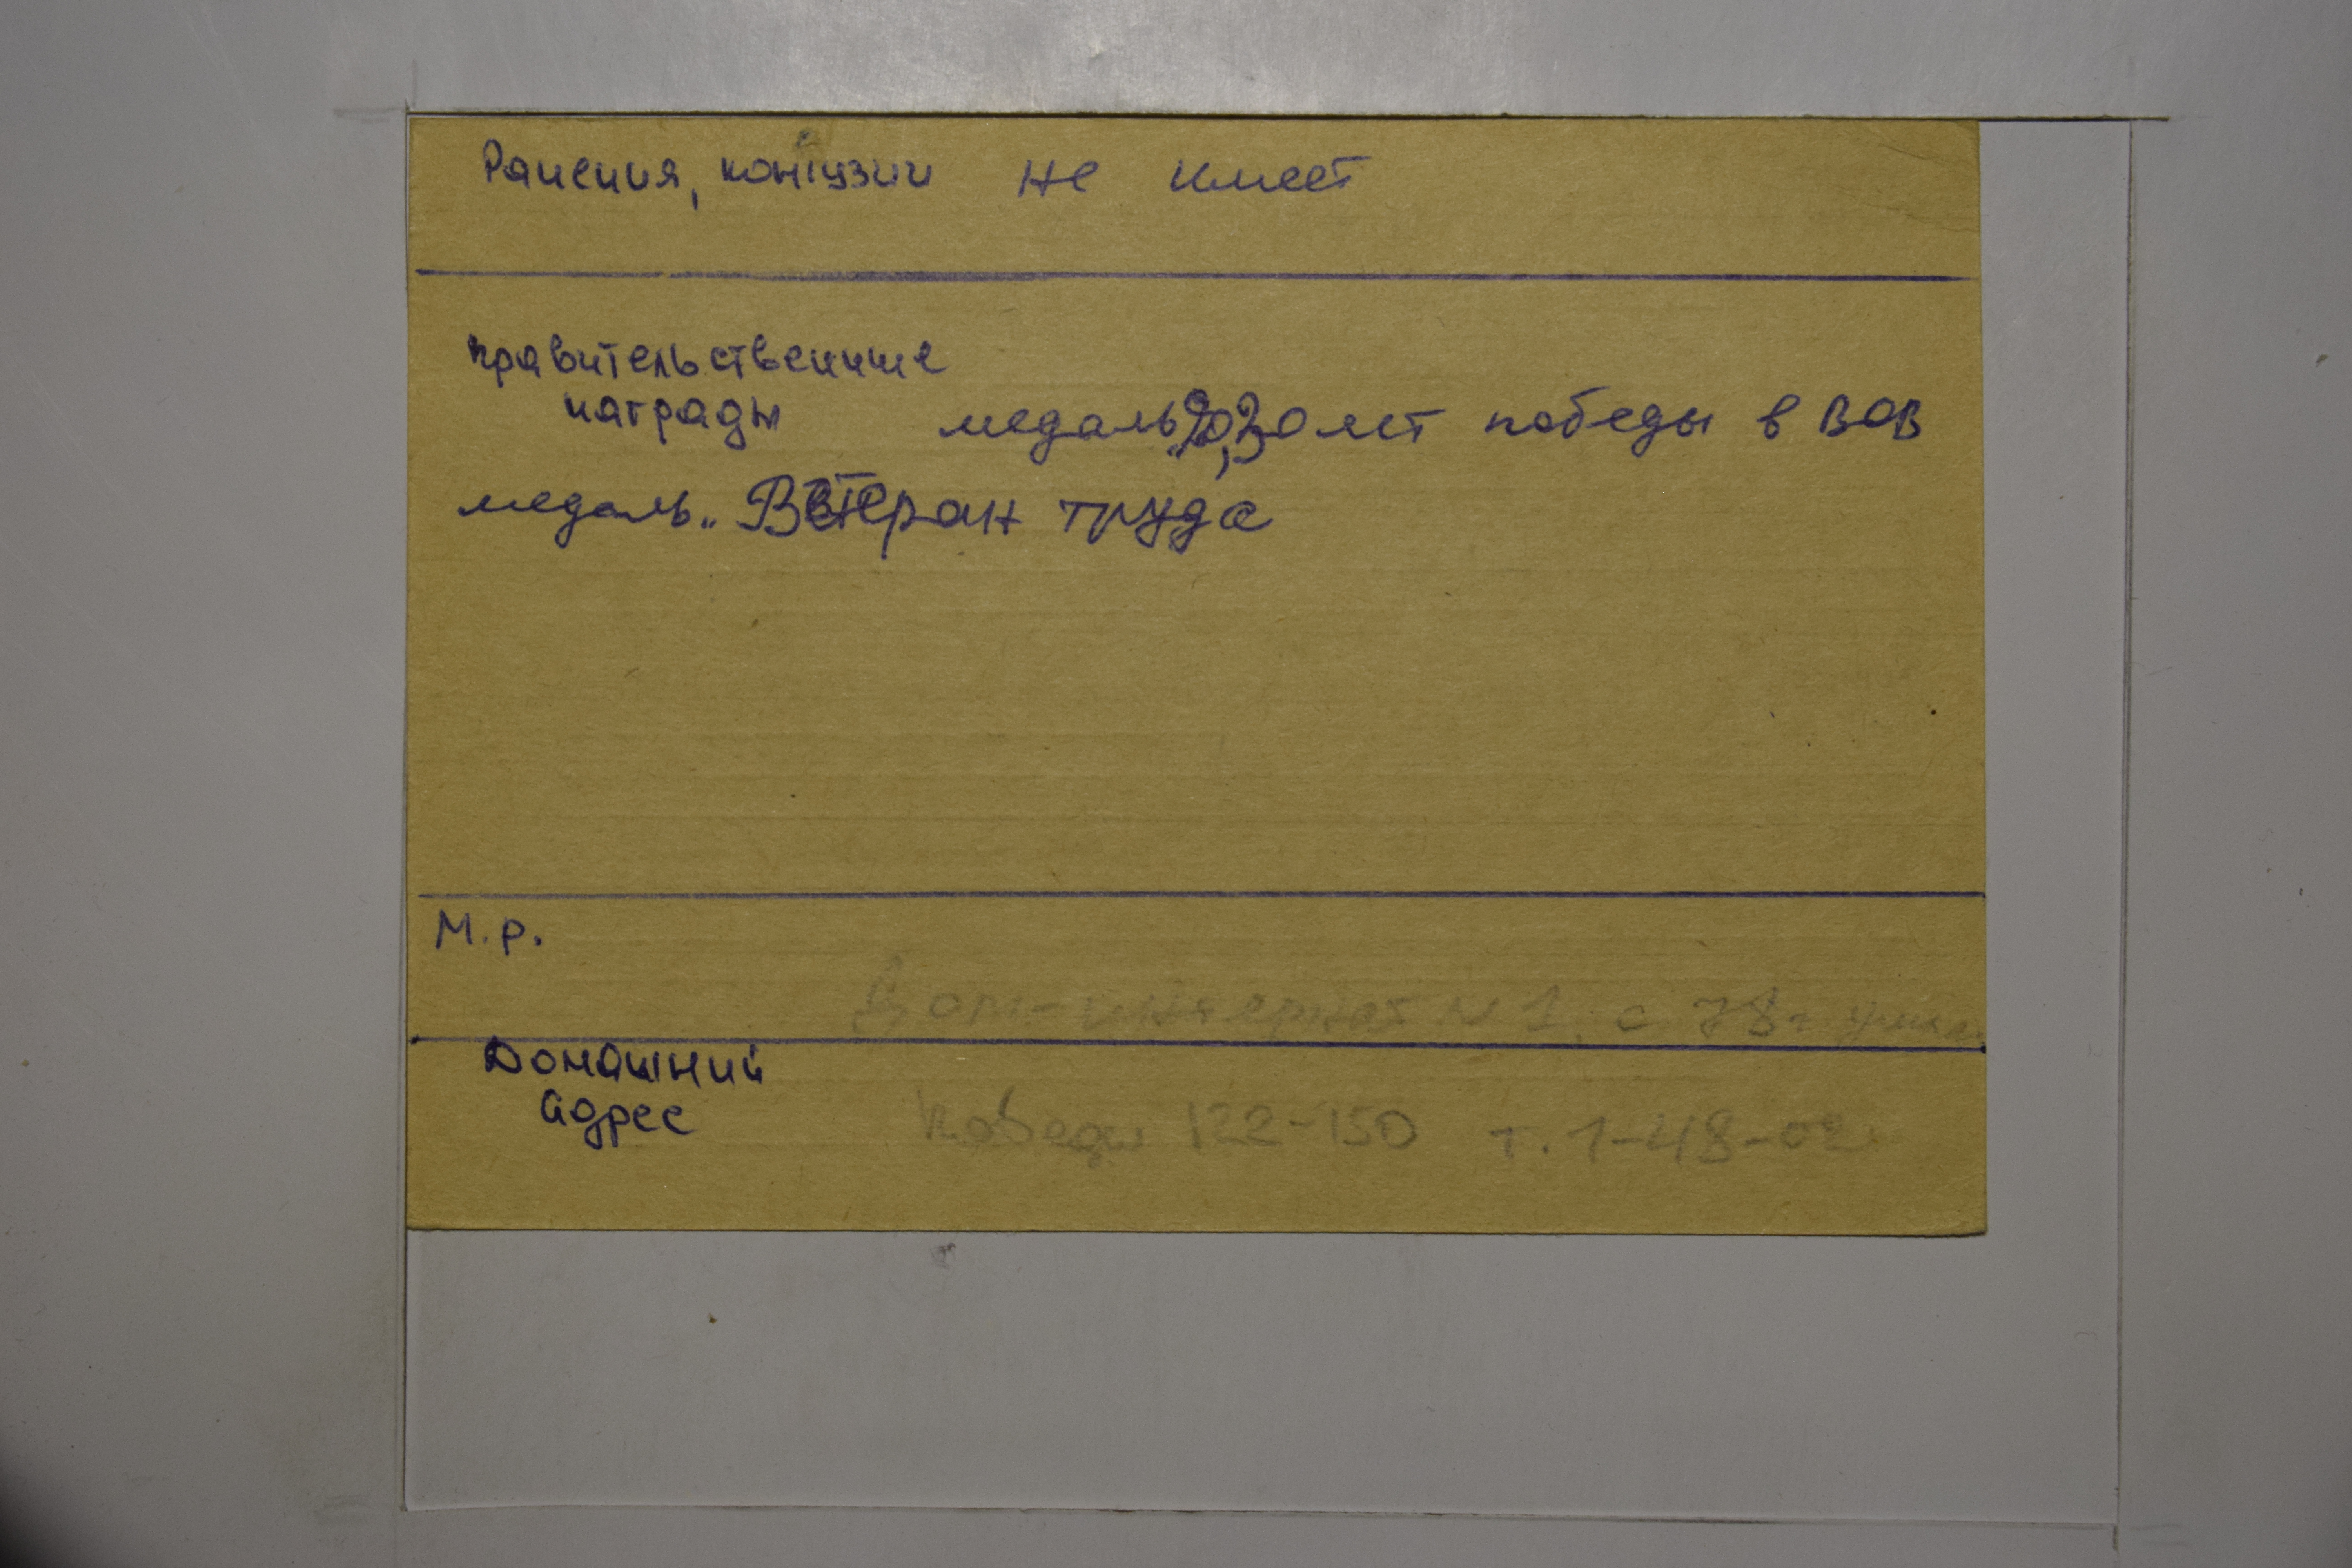 Ранения, контузии не имеет
правительственные
награды медаль „20,30 лет победы в ВОВ
медаль „Ветеран труда
М.р.
Дом-интернат N 1, с 78г
Домашний
адрес Победы 122-150 т. 1-48-02